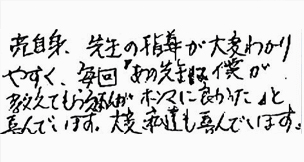 売自身、先生の指導が大変わかり
やすく、毎回「あの先生は僕が
教えてもらう人がホンマに良かった」と
喜んでいます。大変私達も喜んでいます。